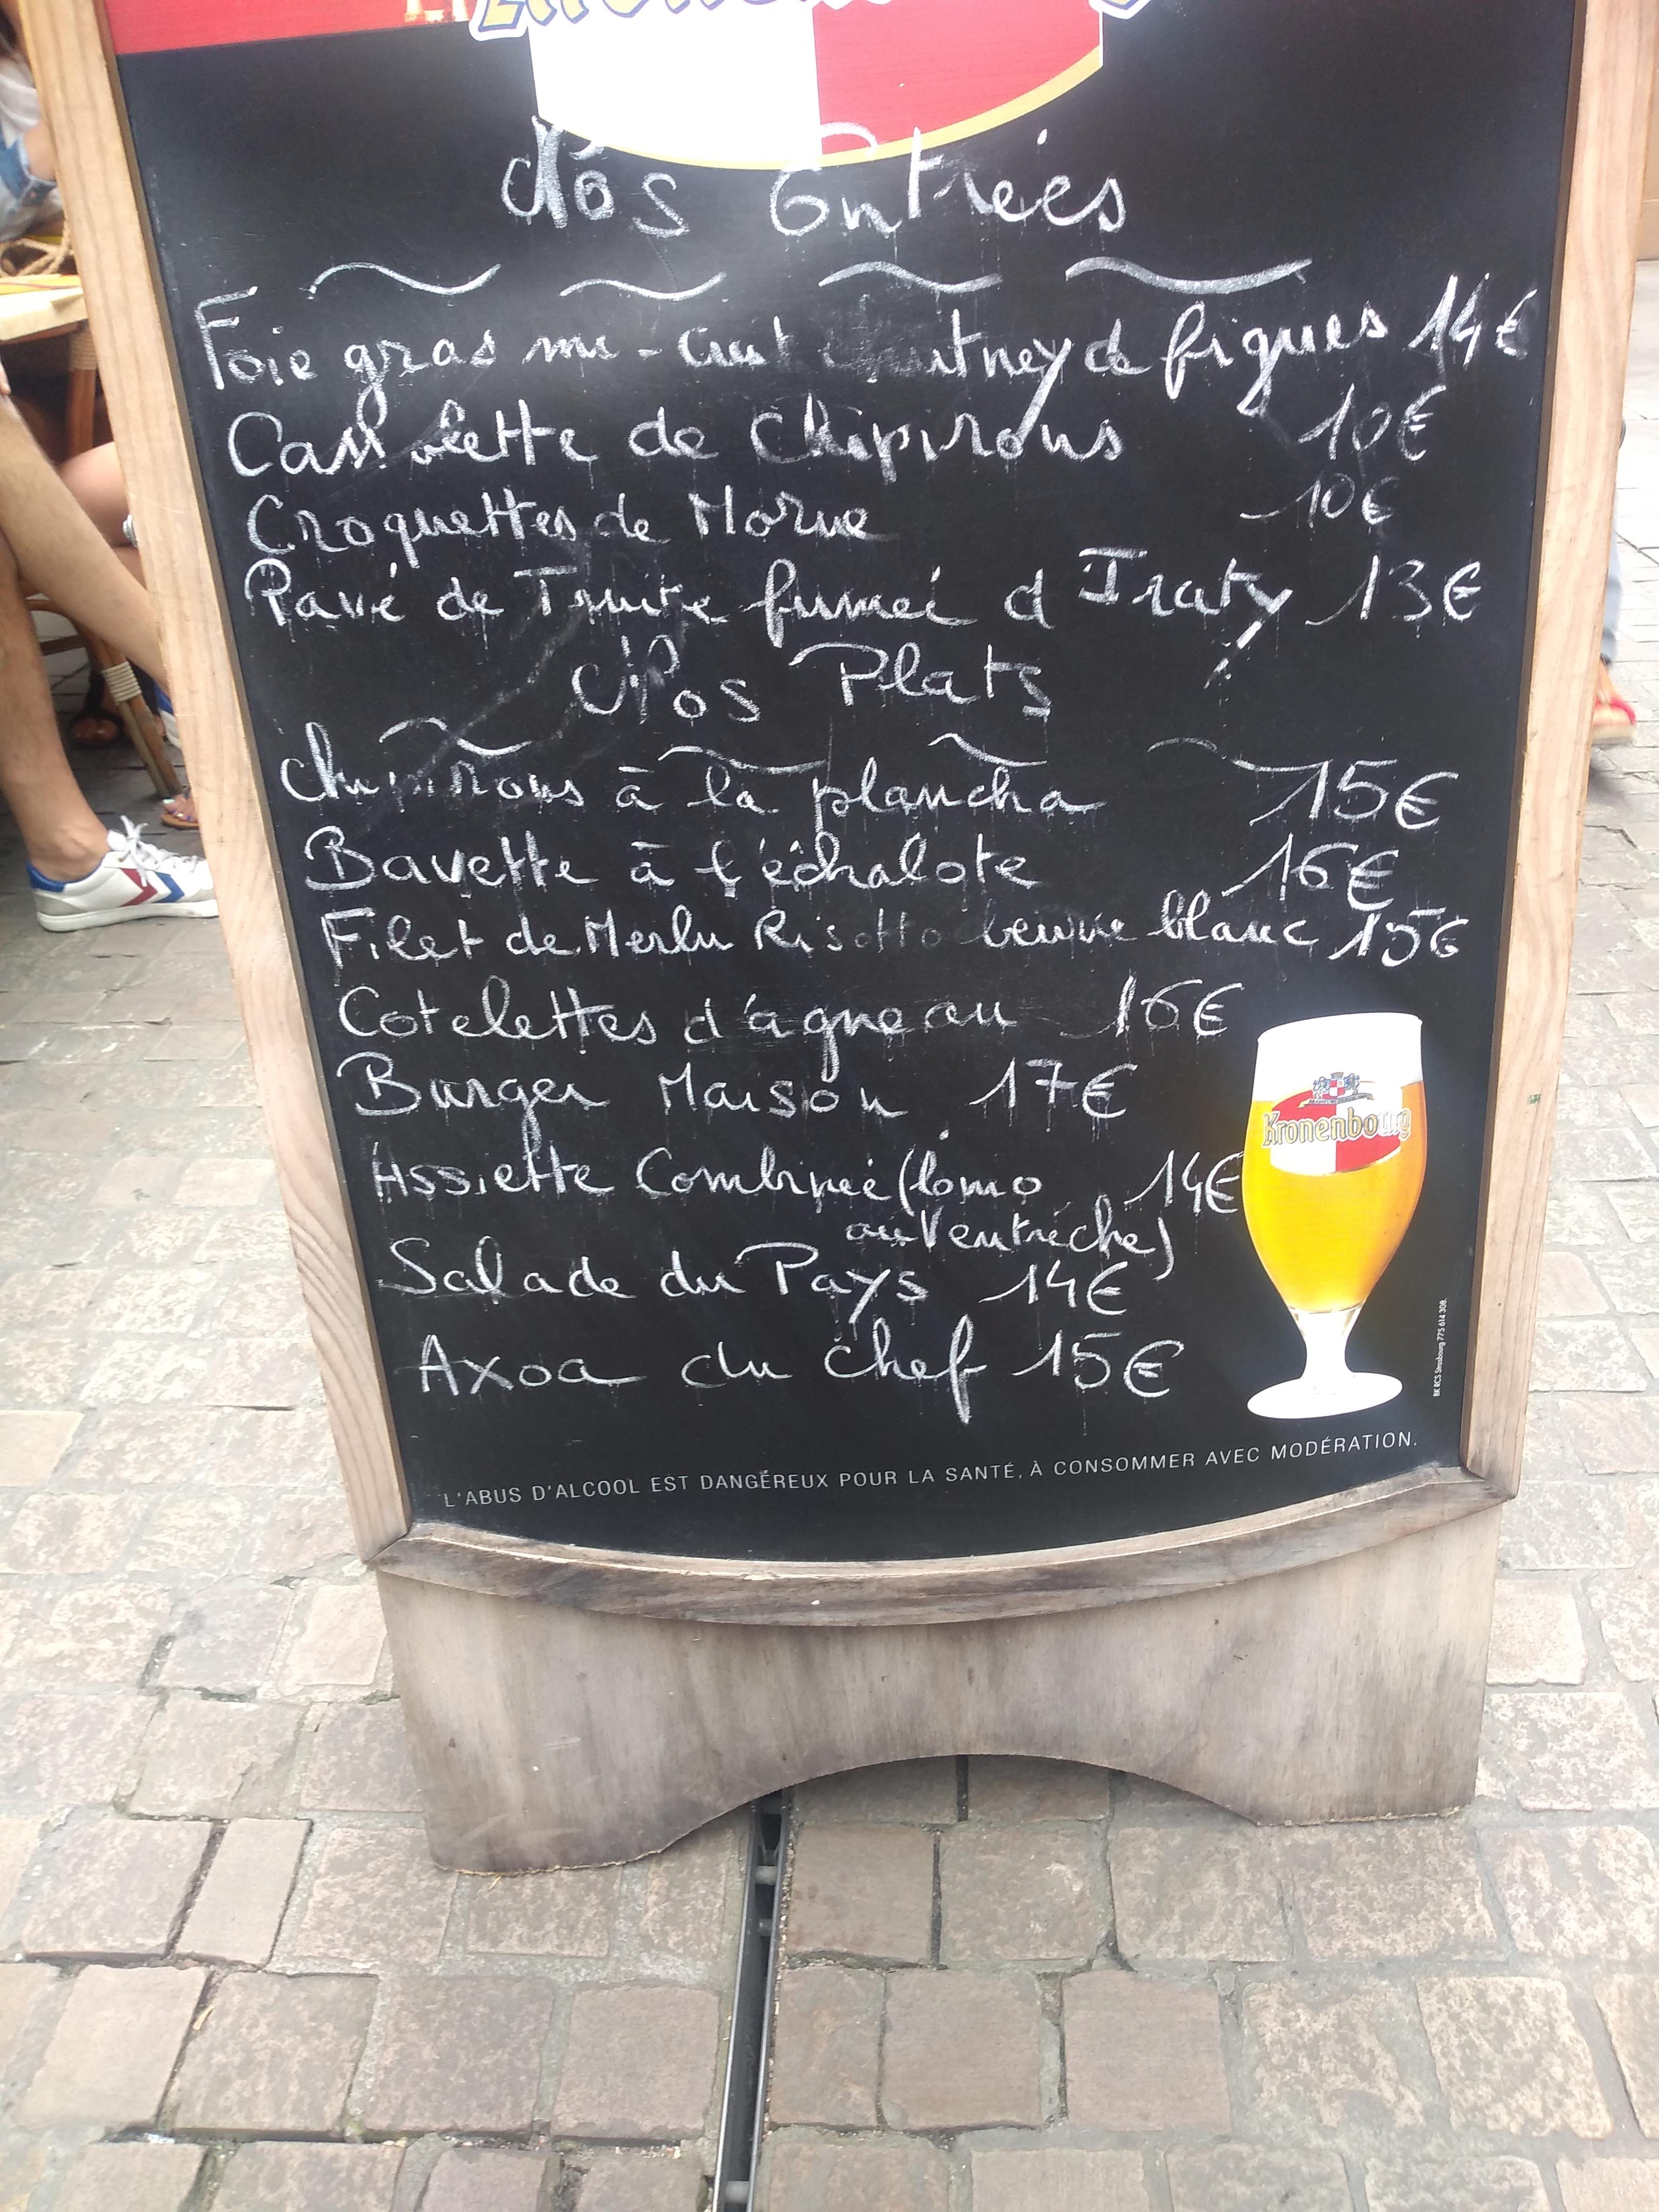 Nos Entrées
Foie gras mi-cuit chutney de figues 14€
Cassolette de Chipirons 10€
Croquettes de Morue - 10€
Pavé de Truite fumée d Iraty 13€
Nos Plats
Chipirons à la plancha 15€
Bavette à l'échalote 16€
Filet de Merlu Risotto beurre blanc 15€
Cotelettes d'agneau 16€
Burger Maison 17€
Assiette Combinée (lomo 14€
ou Ventrèche)
Salade du Pays 14€
Axoa du chef 15€
Kronenbourg
BK RCS Strasbourg 775 614 308.
L'ABUS D'ALCOOL EST DANGEREUX POUR LA SANTÉ, À CONSOMMER AVEC MODÉRATION.